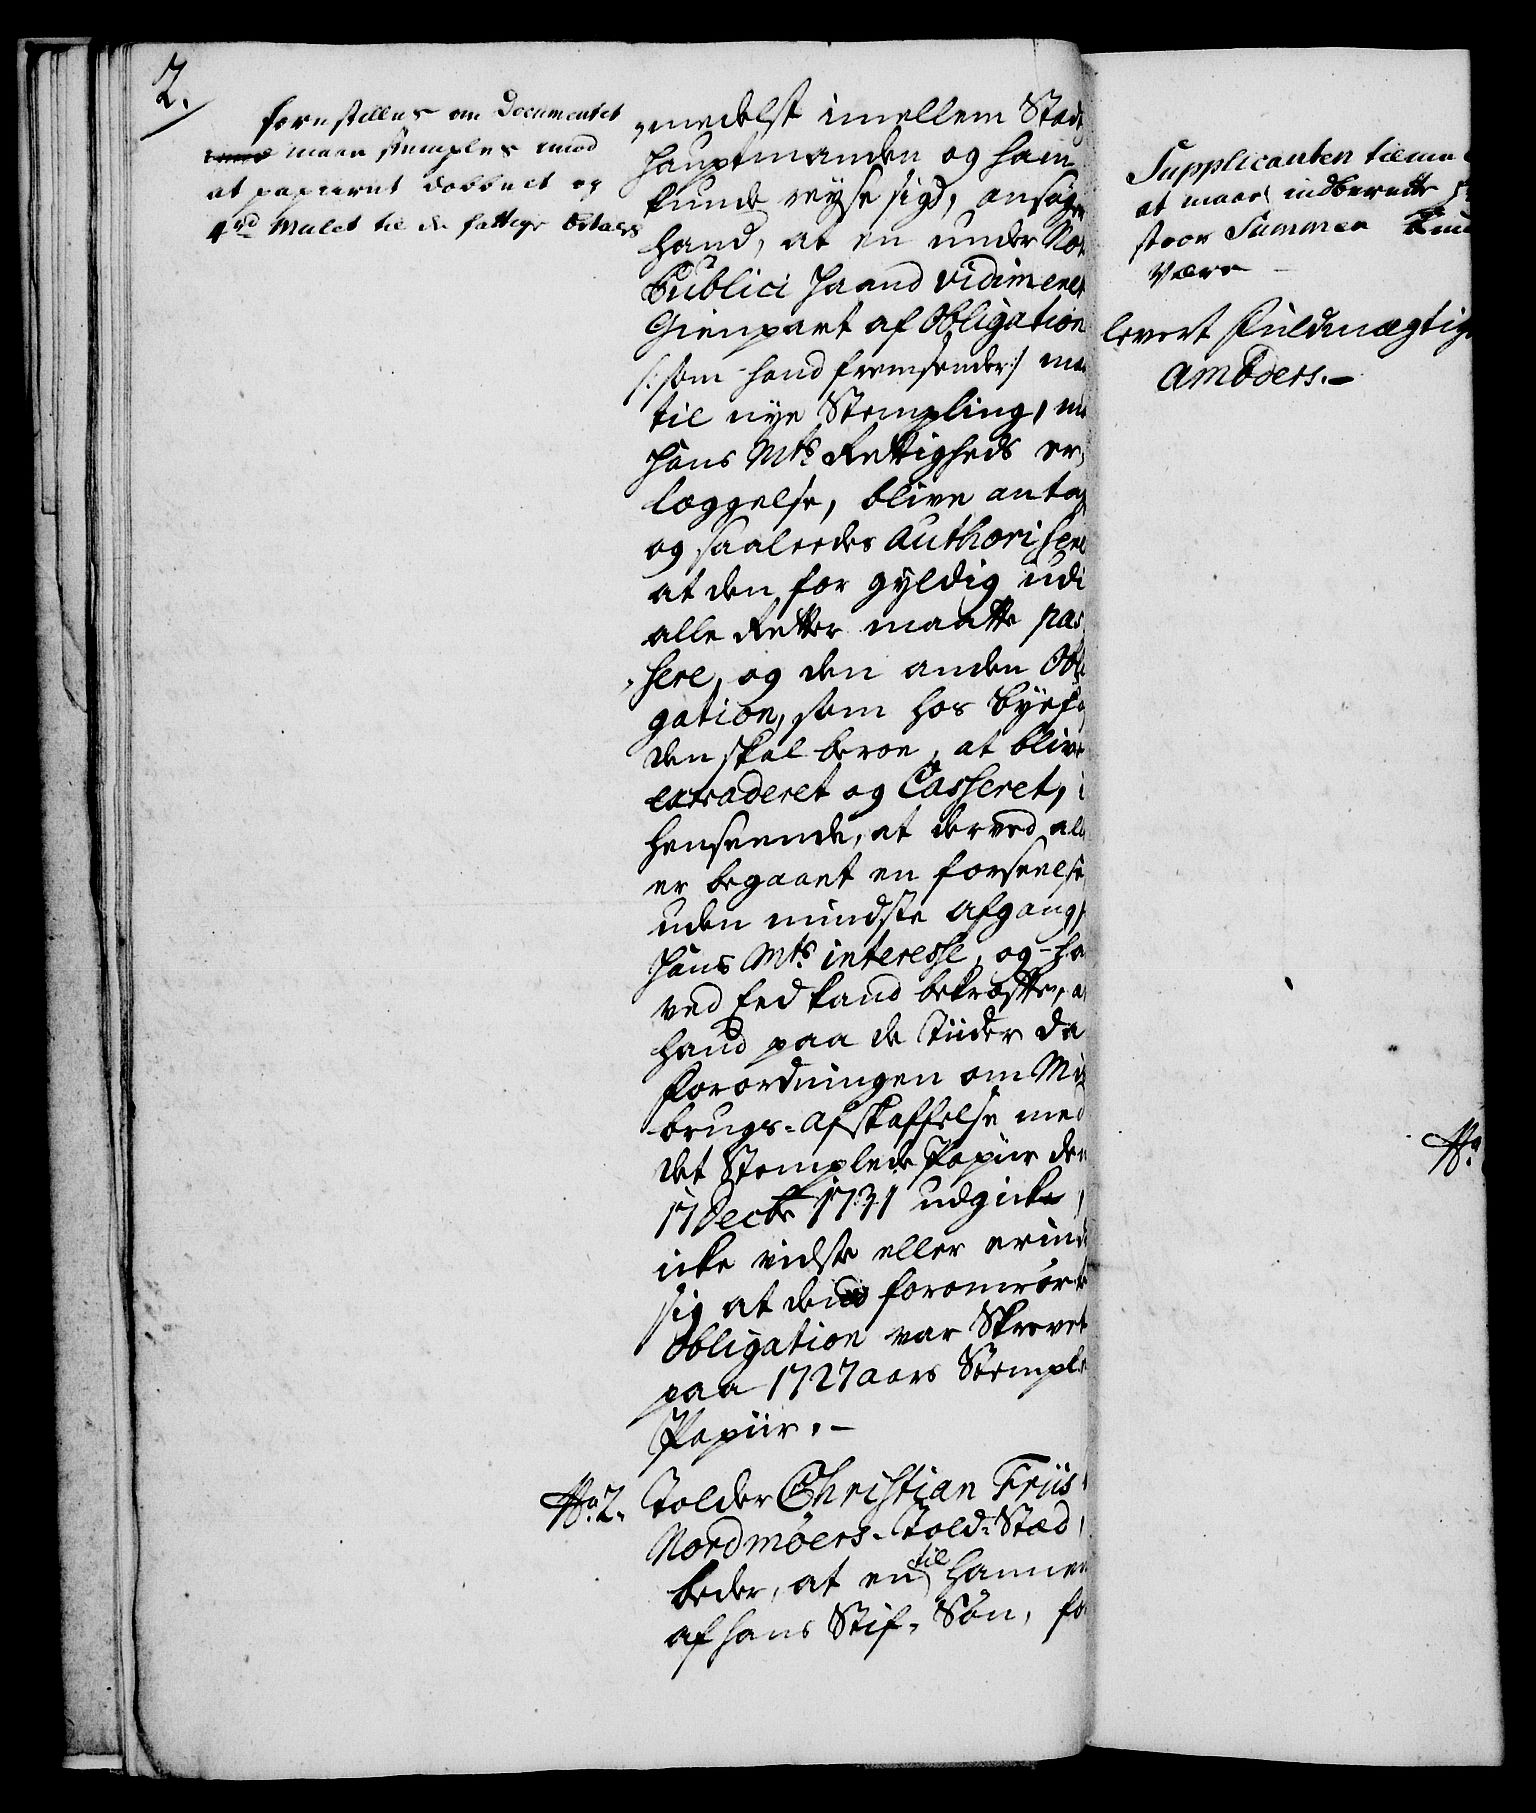 2.
forestilles om Documentet
maae stemples imod
at papiiret dobbelt og
4 rd Mulct til de fattige betales
medelst imellem Stads
Hauptmanden og ham
kunde reyse sig, ansøger
hand, at en under Not
Publici Haand vidimeret
Gienpart af Obligation
/: som hand fremsender :/ maa
til nye Stempling, m
Hans Mts Rettigheds er=
læggelse, blive antag
og saaledes authoriseret
at den for gyldig udi
alle Retter maatte pas=
sere, og den anden Obli
gation, som hos Byefog
den skal beroe, at blive
extraderet og Casseret, i
henseende, at derved all
er begaaet en forseelse
uden mindste afgang
Hans Mts interesse, og ha
ved Eed kand bekræfte, a
hand paa de Tiider da
Forordningen om Mis
brugs=Afskaffelse med
det Stemplede Papiir den
17 Decbr 1731 udgick,
icke vidste eller erind
sig at den foromrørte
Obligation var Skrevet
paa 1727 aars Stemplet
Papiir. –
No. 2. Tolder Christian Friis
Nordmøers Told=Stæd,
beder, at en til hannem
af hans Stif=Søn, fo
Supplicanten
at maae indberette
stoor Summen
være
levert Fuldmægtig
Ambders. –
No.